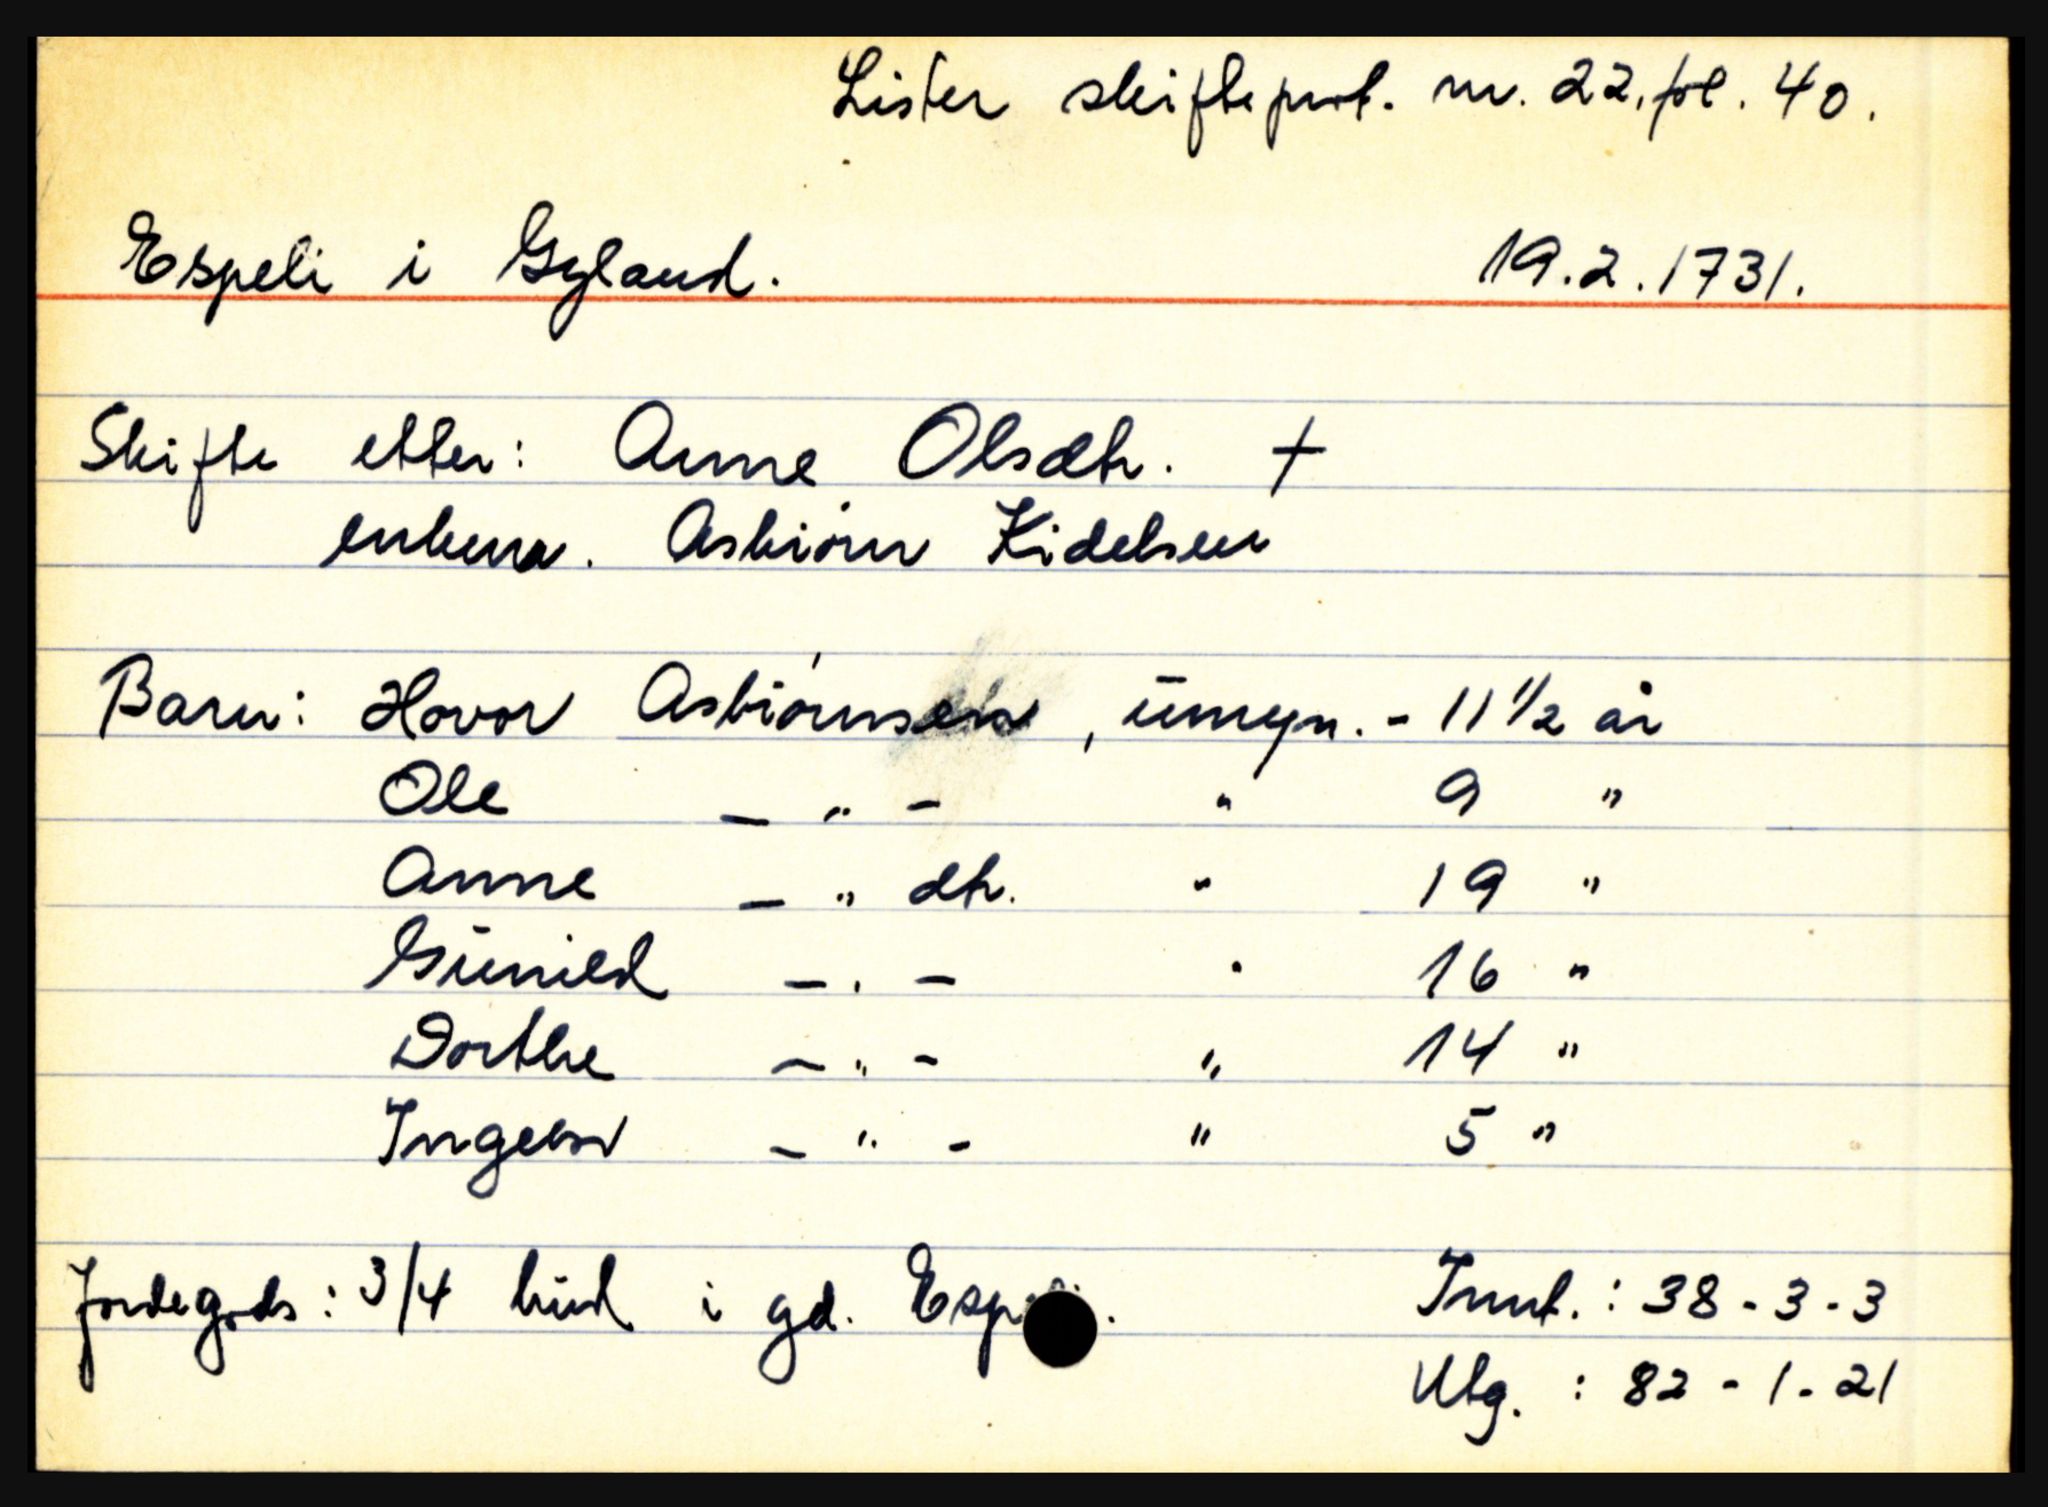 Lister skifteprot. nr. 22, fol. 40.
Espeli i Gyland. 19.2.1731.
Skifte etter: Anne Olsdtr. †
enkem. Asbiørn Kidelsen
Barn: Hovor Asbiørnsen, ūmyn. - 11 1/2 år
Ole — " — " 9 "
Anne — " dtr. " 19 "
Gūnild — " — " 16 "
Dorthe — " — " 14 "
Ingebor — " — " 5 "
Jordegods: 3/4 hūd i gd. Espeli. Innt.: 38-3-3
Utg.: 82-1-21